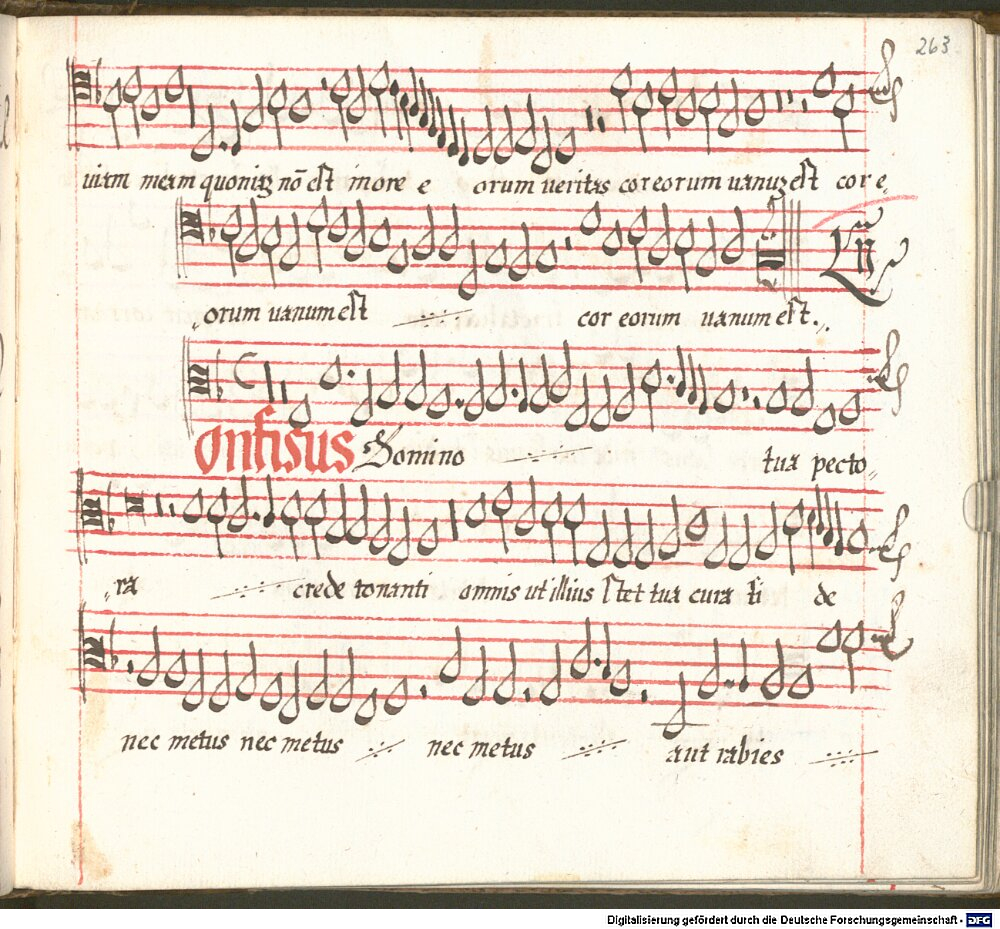 263
uiam meam quoniaꝫ nō est in ore e orum ueritas cor eorum uanuꝫ est cor e
orum uanum est cor eorum uanum est.
onfisus Domino tua pecto
ra crede tonanti omnis ut illius stet tua cura fi de
nec metus nec metus nec metus aut rabies
Digitalisierung gefördert durch die Deutsche Forschungsgemeinschaft - DFG